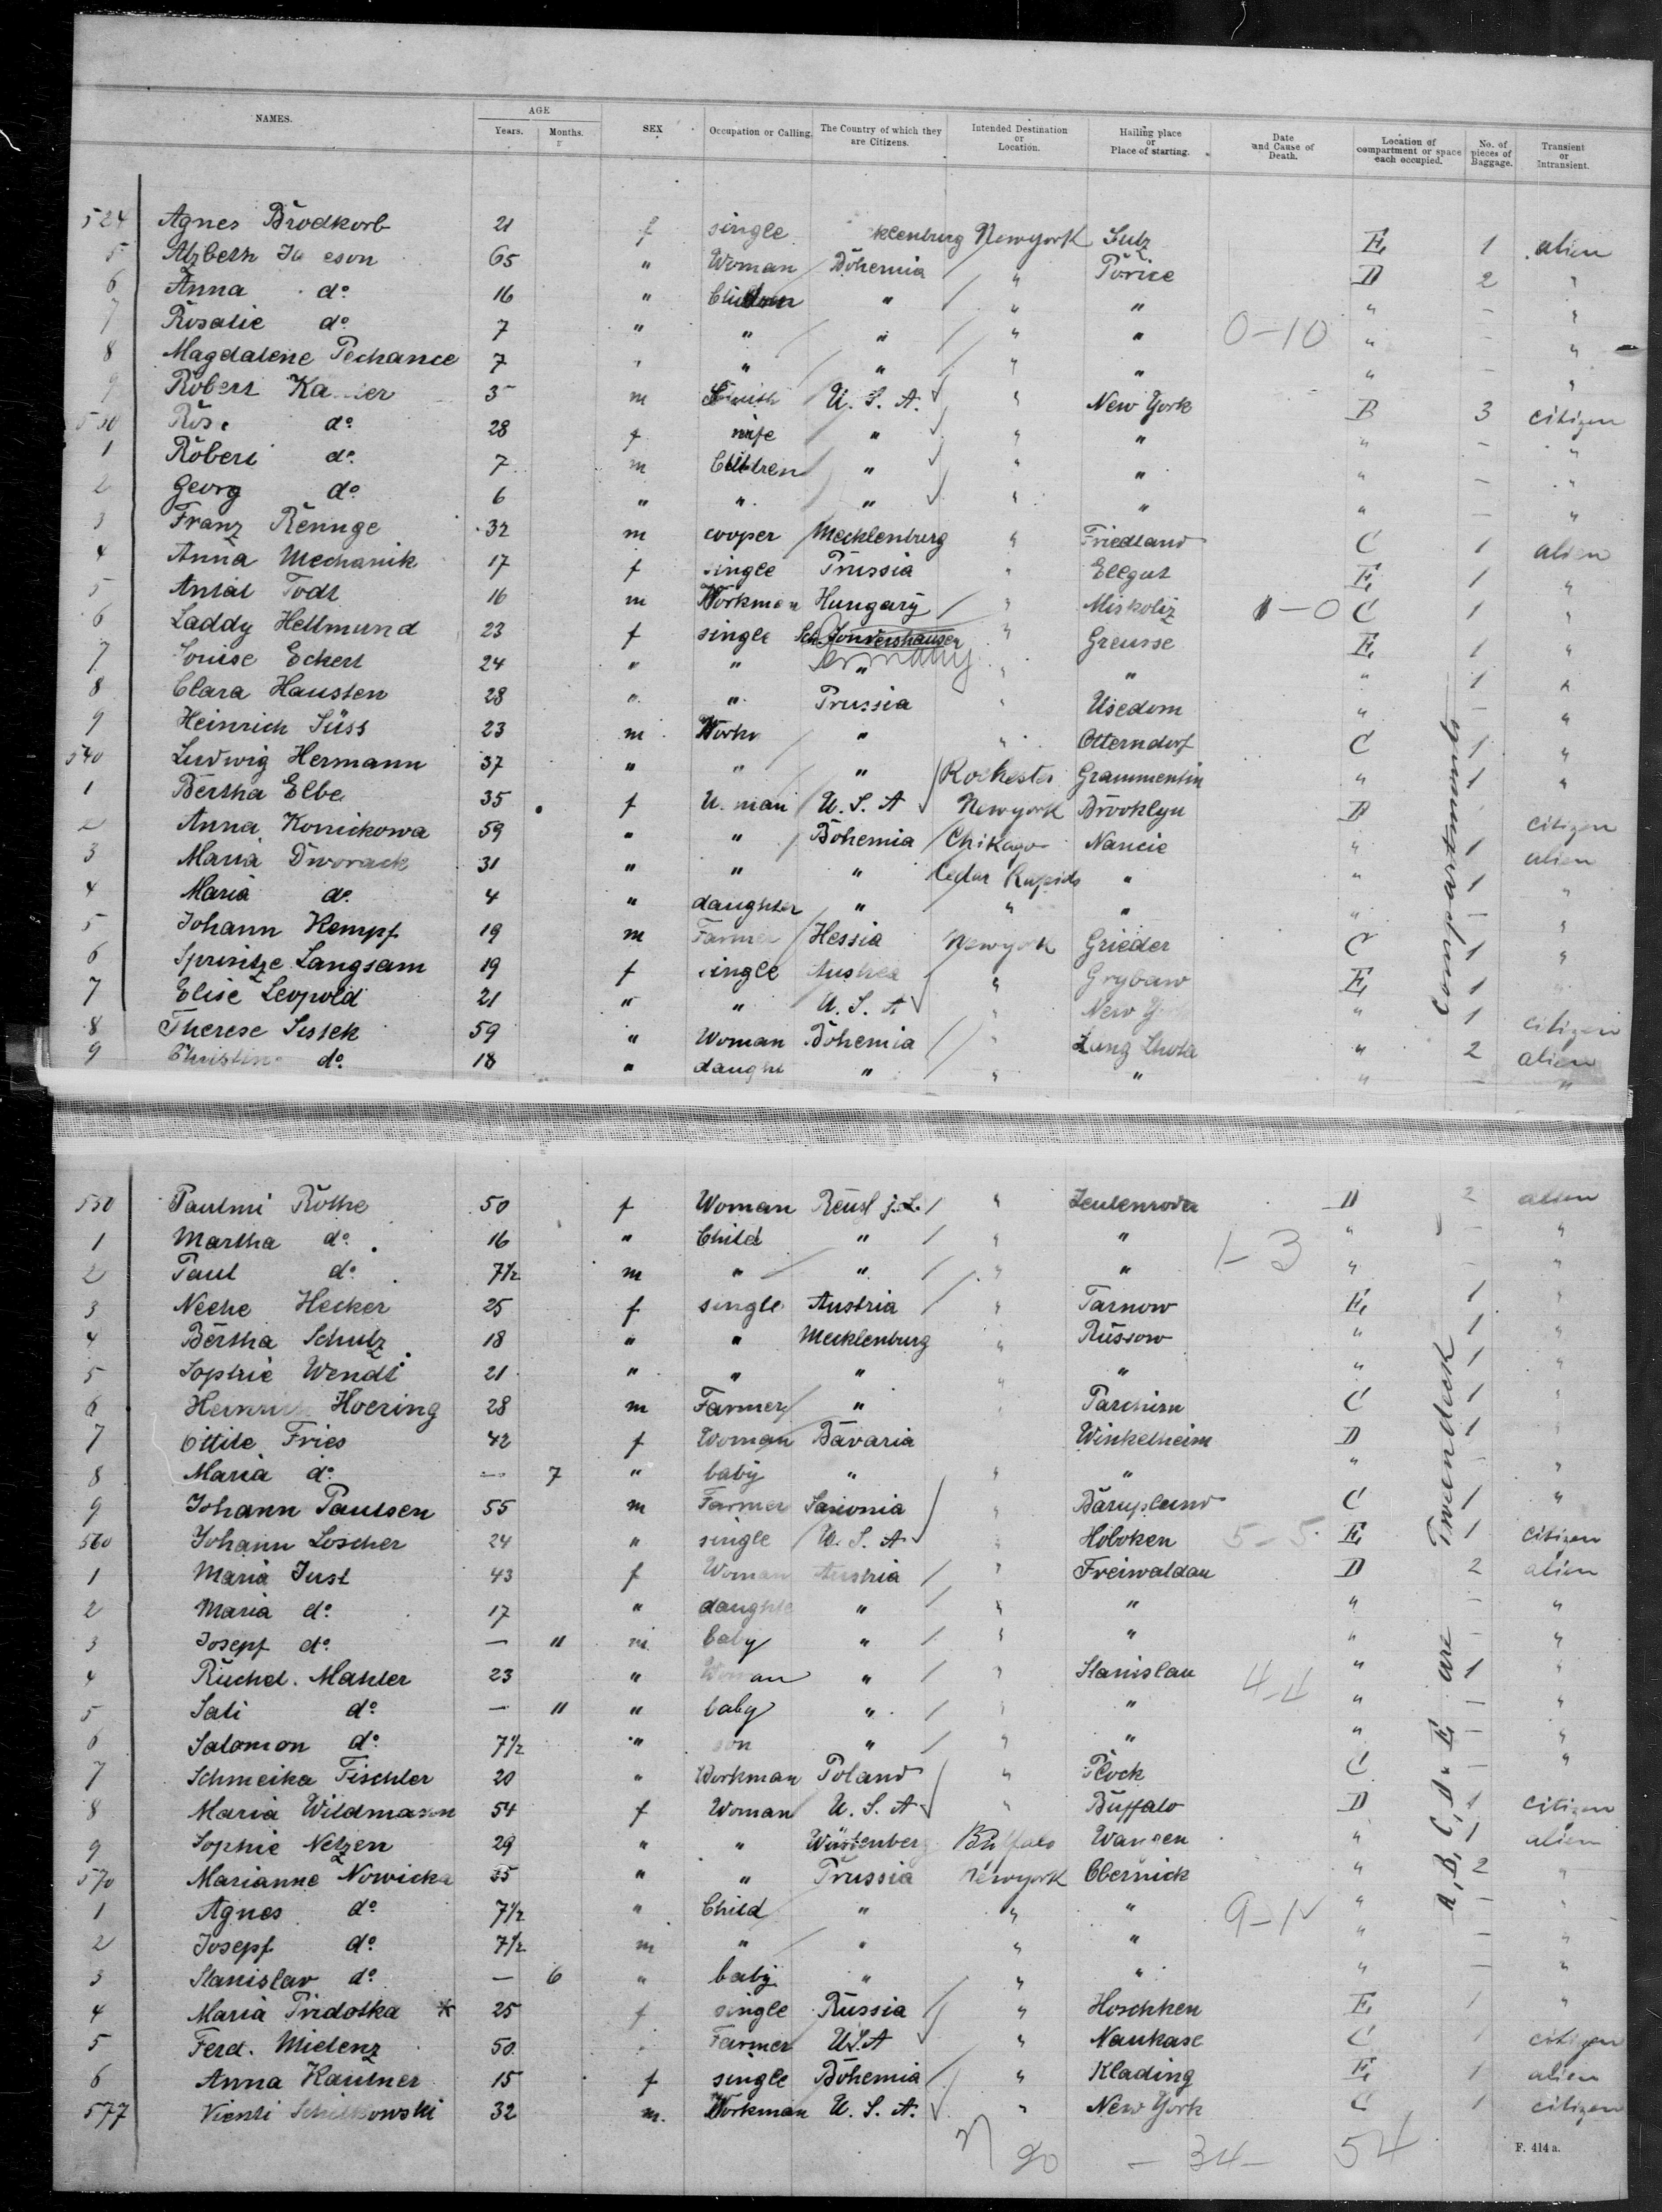 NAMES. AGE Years. Months. SEX Occupation or Calling. The Country of which they are Citizens. Intended Destination or Location. Hailing place or Place of starting. Date and Cause of Death. Location of compartment or space each occupied. No. of pieces of Baggage. Transient or Intransient.
524 Agnes Brodkorb 21 f single klenburg Newyork Sulz E 1 alien
5 65 " Woman Bohemia " Porice D 2 "
6 Anna do 16 " Children " " " " - "
7 Rosalie do 7 " " " " " 0-10 " - "
8 Magdalene Pechance 7 " " " " " " - "
9 Robert 35 m U. S. A. " New York B 3 citizen
530 do 28 f wife " " " " - "
1 Robert do 7 m Children " " " " - "
2 Georg do 6 " " " " " " - "
3 Franz Rennge 32 m cooper Mecklenburg " Friedland C 1 alien
4 Anna Mechanik 17 f single Prussia " Ellgut E 1 "
5 Antal Todt 16 m Workman Hungary " Miskolz 1-0 C 1 "
6 Laddy Hellmund 23 f single Sch. Sondershausen " Greusse E 1 "
7 Louise Eckert 24 " " Germany " " " 1 "
8 Clara Hausten 28 " " Prussia " Usedom " - "
9 Heinrich Süss 23 m " " Otterndorf C 1 "
540 Ludwig Hermann 37 " " " Rochester Grammentin " 1 "
1 Bertha Elbe 35 f U. S. A Newyork Brooklyn D citizen
2 Anna Konickowa 59 " " Bohemia Chikago Nancie " 1 alien
3 Maria Dworack 31 " " " Cedar Rapids " " 1 "
4 Maria do 4 " daughter " " " " - "
5 Johann Kempf 19 m Farmer Hessia Newyork Grieder C 1 "
6 Sprintze Langsam 19 f single Austria " Grybaw E 1 "
7 Elise Leopold 21 " " U. S. A " New York " 1 citizen
8 Therese Sissek 59 " Woman Bohemia " Lang Lhota " 2 alien
9 Christine do 18 " daught " " " " - "
Compartments
550 Paulmi Rothe 50 f Woman Reusf j. L. " Zeulenroda D 2 alien
1 Martha do 16 " Child " " " 1-3 " - "
2 Paul do 7½ m " " " " " - "
3 Neche Hecker 25 f single Austria " Tarnow E 1 "
4 Bertha Schulz 18 " " Mecklenburg " Russow " 1 "
5 Sophie Wendt 21 " " " " " " 1 "
6 Heinrich Hoering 28 m Farmer " " Parchim C 1 "
7 Ottile Fries 42 f Woman Bavaria Winkelheim D 1 "
8 Maria do - 7 " baby " " " " - "
9 Johann Paulsen 55 m Farmer Saxonia " C 1 "
560 Johann Loscher 24 " single U. S. A " Hoboken 5-5 E 1 citizen
1 Maria Just 43 f Woman Austria " Freiwaldau D 2 alien
2 Maria do 17 " daughte " " " " - "
3 Josepf do - 11 m baby " " " " - "
4 Ruchel. Mahler 23 " Woman " " Stanislau 4-4 " 1 "
5 Sali do - 11 " baby " " " " - "
6 Salomon do 7½ " son " " " " - "
7 Schmeika Fischler 20 " Workman Poland " Plock C - "
8 Maria Wildmann 54 f Woman U. S. A " Buffalo D 1 citizen
9 Sophie Netzen 29 " " Würtenberg Buffalo Wangen " 1 alien
570 Marianne Nowicka 35 " " Prussia Newyork Obernick " 2 "
1 Agnes do 7½ " Child " " " " - "
2 Josepf do 7½ m " " " " " - "
3 Stanislav do - 6 " baby " " " " - "
4 Maria Pridotka * 25 f single Russia " Hoschken E 1 "
5 Ferd. Mielenz 50 Farmer U.S.A " Naukase C 1 citizen
6 Anna Kautner 15 f single Bohemia " Klading E 1 alien
577 32 m. Workman U. S. A. " New York C 1 citizen
A, B, C, D. E are Tweendeck
90 - 34 - 54
F. 414 a.